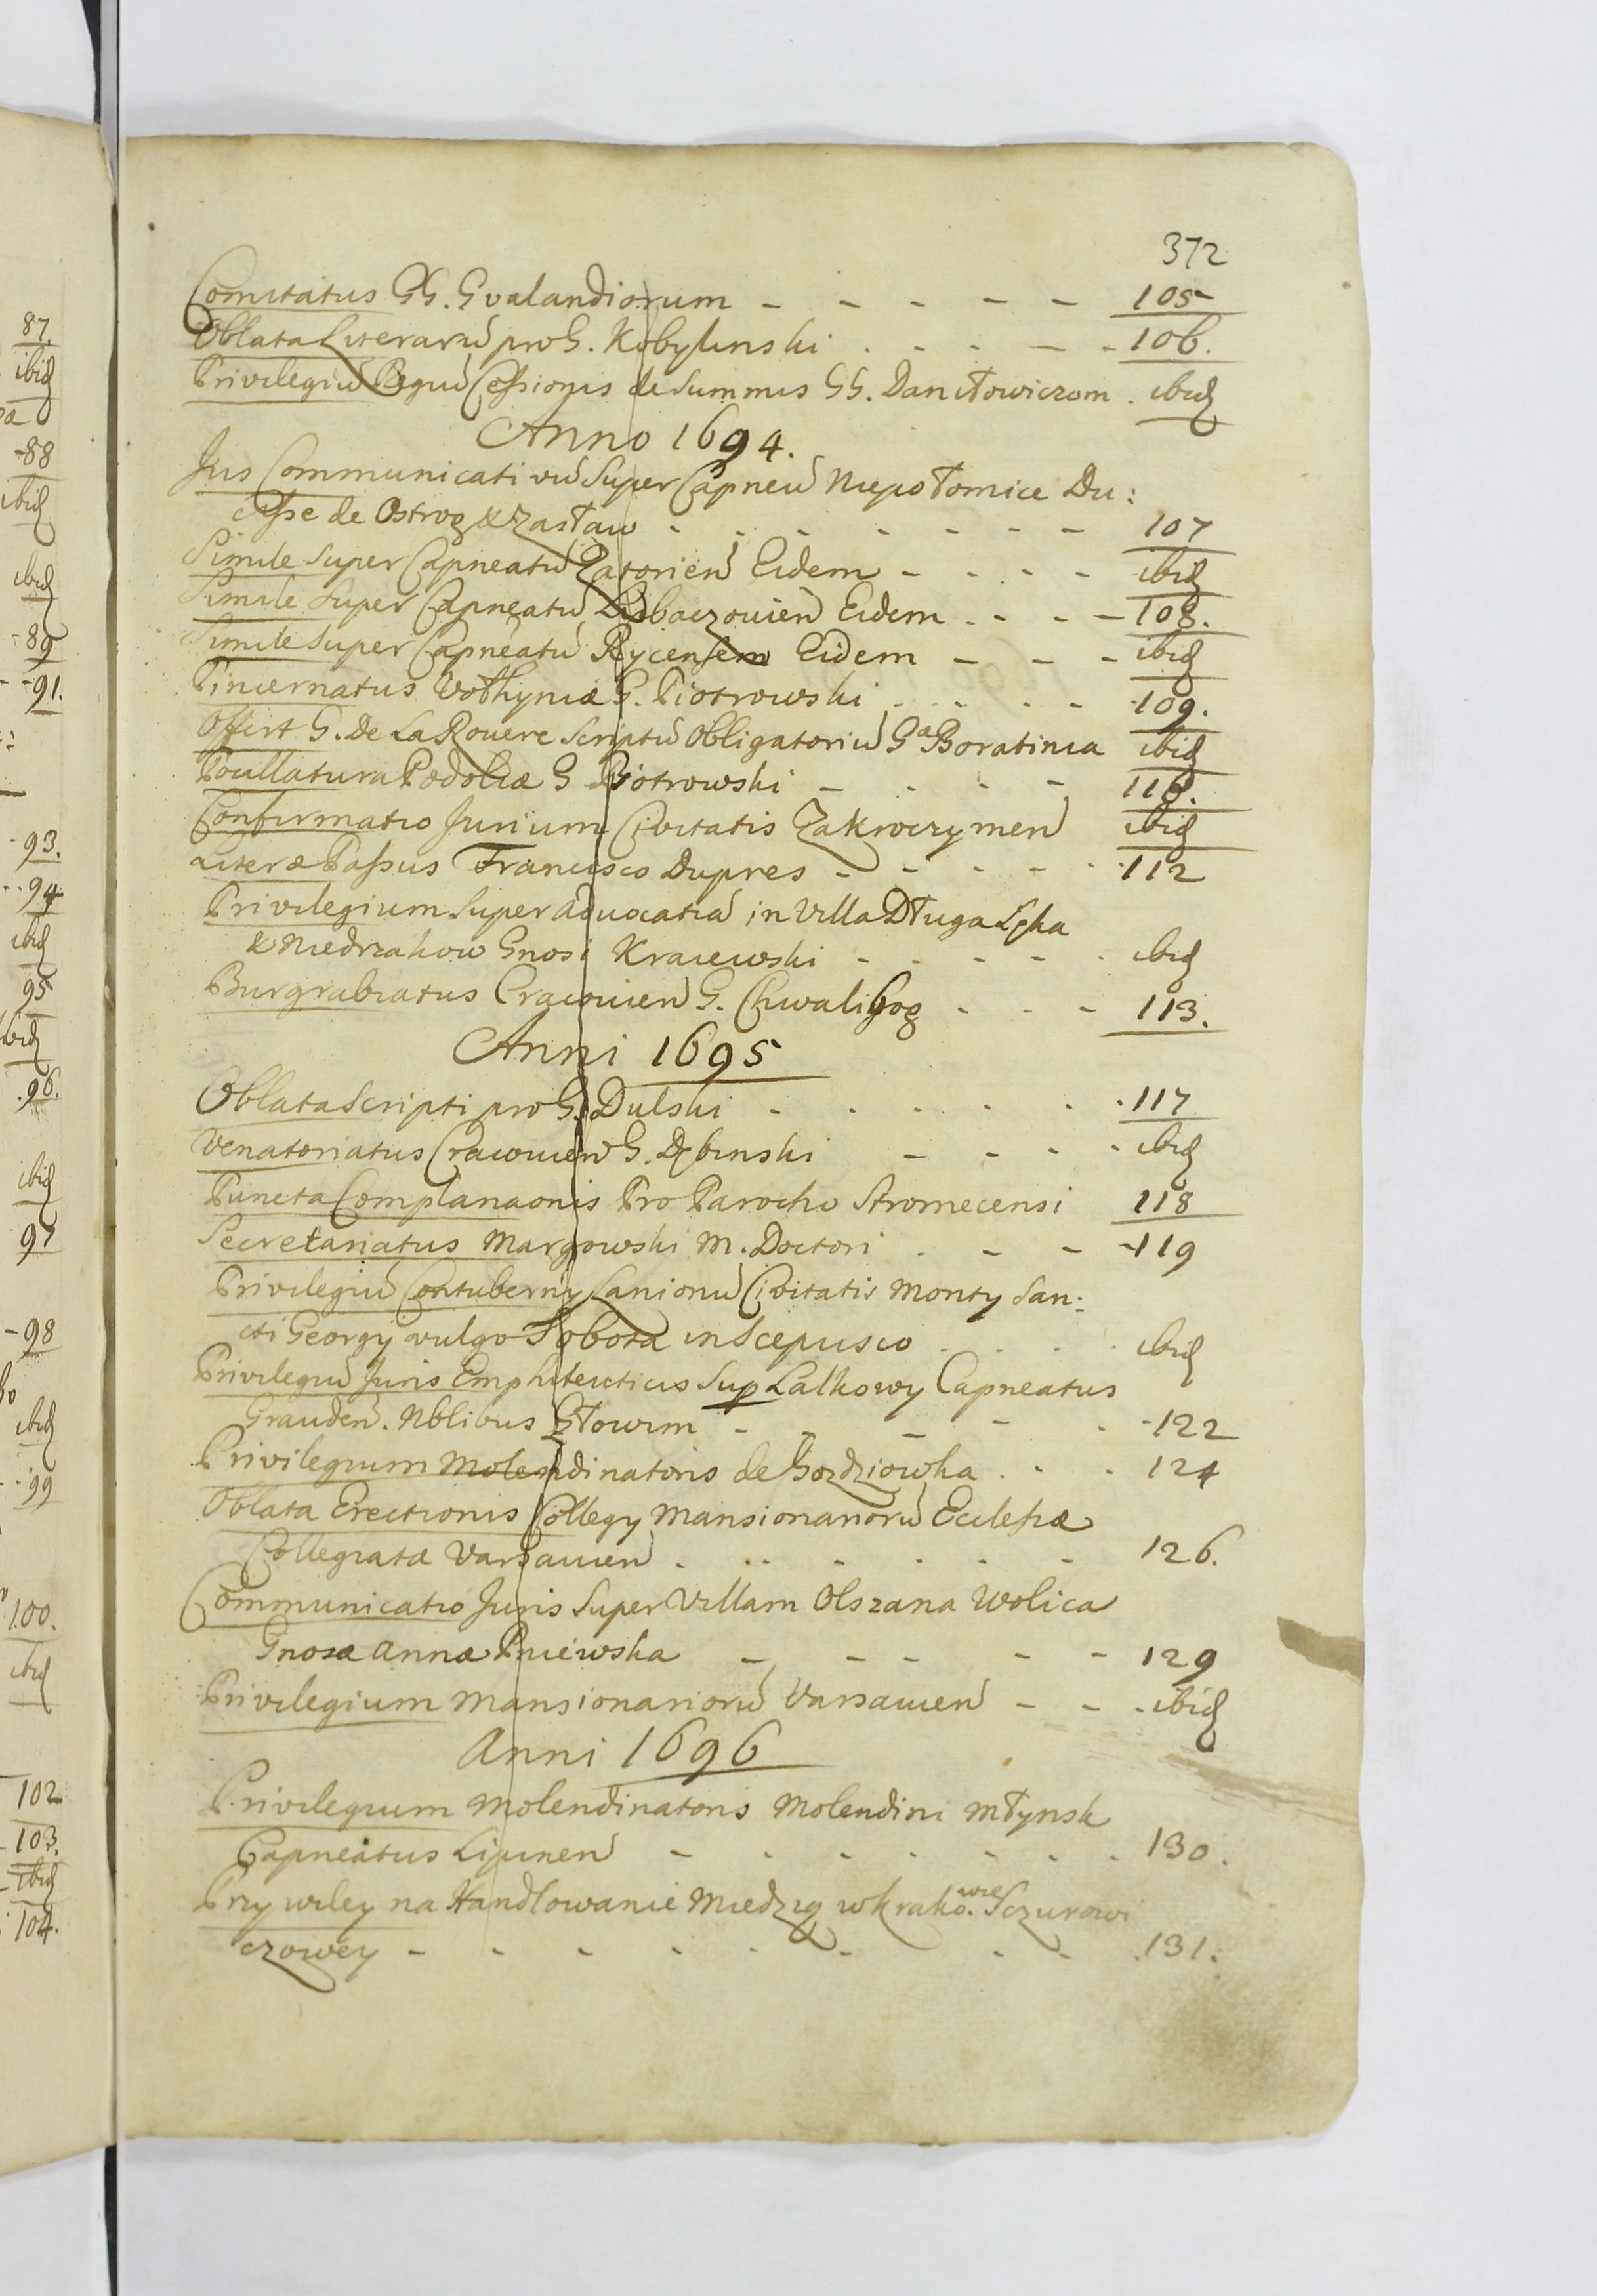 372
Comitatus GG. Gvalandiorum - - - - - 105
Oblata Literarũ pro G. Kobylinski . - - - - 106.
Privilegiũ Regiũ Cessionis de Summis GG. Daniłowiczom . ibid
Anno 1694.
Jus Communicativũ Super Capneũ Niepołomice Du:
cisse de Ostrog & Zasław - - - - - - - 107
Simile Super Capneatũ Zatorień Eidem - - - - ibid
Simile Super Capneatũ Lubaczovień Eidem . - - - 108.
Simile Super Capneatũ Rycensem Eidem - - - ibid
Pincernatus Vołhyniæ G. Piotrowski . - . . - 109.
Offert G. De La Rovere Scriptũ Obligatoriũ Ga Boratinia ibid
Pocillatura Podoliæ G Piotrowski - - - - 110.
Confirmatio Jurium Civitatis Zakroczymeń ibid
Literæ Passus Francisco Dupres - - - - . 112
Privilegium Super Advocatiã in Villa Długa Łęka
& Niedrzakow Gnosi Kraiewski - - - - . ibid
Burgrabiatus Cracovień G. Chwalibog - - - 113.
Anni 1695
Oblata Scripti pro G. Dulski - . . . . . 117
Venatoriatus Cracovień G. Dębinski - - - . ibid
Puncta Complanaonis Pro Parocho Stromecensi 118
Secretariatus Margowski M. Doctori . - - - 119
Privilegiũ Contubernÿ Lanionũ Civitatis Monty San:
cti Georgÿ vulgo Sobota in Scepusio . . . . ibid
Privilegiũ Juris Emphiteuticus Sup Lalkowy Capneatus
Graudeń. Nblibus Głowim - - - - . 122
Privilegium Molendinatoris de Gozdziowka . . . 124
Oblata Erectionis Collegÿ Mansionariorũ Ecclesiæ
Collegiatæ Varsavień . .. - . - - 126.
Communicatio Juris Super Villam Olszana Wolica
Gnosæ Annæ Pniewska - - - - - 129
Privilegium Mansionariorũ Varsavień - - . ibid
Anni 1696
Privilegium Molendinatoris Molendini Młynsk
Capneatus Lipnień - . . . - . . 130.
Przywiley na Handlowanie Miedzią w Krako.wie Sczurowi
czowey - - - - - - - - 131.
87.
ibid
88
ibid
ibid
- 89
- - 91.
- 93.
- - 94
ibid
95
ibid
.96.
ibid
97
- 98
ibid
- 99
100.
ibid
102
- 103.
- ibid
104.